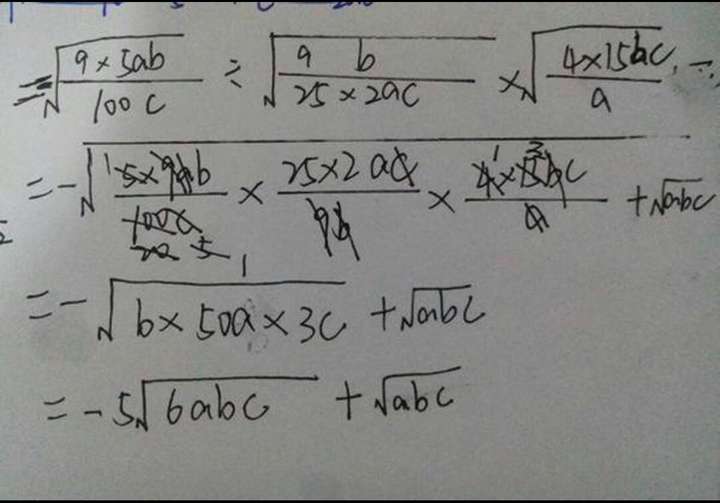 = √(9×5ab/100c) ÷ √(9b/25×2ac) × √(4×15bc/a)
= -√(5×9ab/100c × 25×2ac/9b × 4×15bc/a) + √abc
= -√(b×50a×3c) + √abc
= -5√6abc + √abc